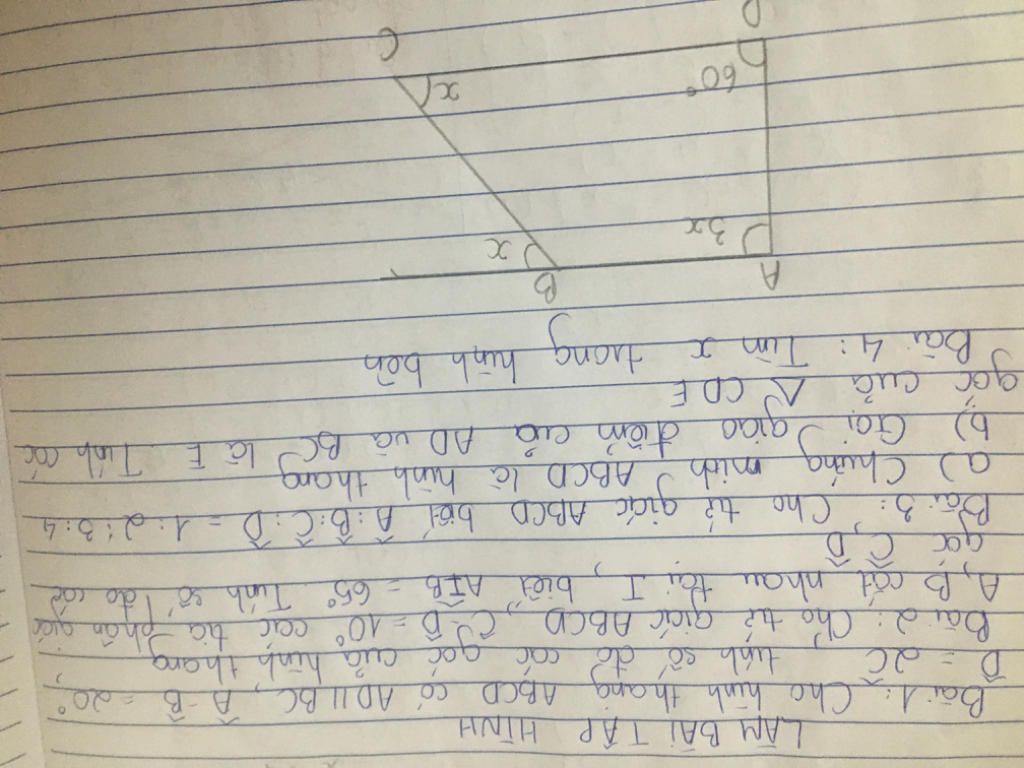 LÀM BÀI TẬP HÌNH
Bài 1: Cho hình thang ABCD có AD//BC, Â-B̂ = 20°
D̂ = 2Ĉ, tính số đo các góc của hình thang
Bài 2: Cho tứ giác ABCD, Ĉ-D̂ = 10° các tia phân giác
A, B cắt nhau tại I, biết AÎB = 65° Tính số đo các
góc Ĉ, D̂
Bài 3: Cho tứ giác ABCD biết Â:B̂:Ĉ:D̂ = 1:2:3:4
a) Chứng minh ABCD là hình thang
b) Gọi giao điểm của AD và BC là E Tính các
góc của Δ CDE
Bài 4: Tìm x trong hình bên
A B
3x x
60° x
D C